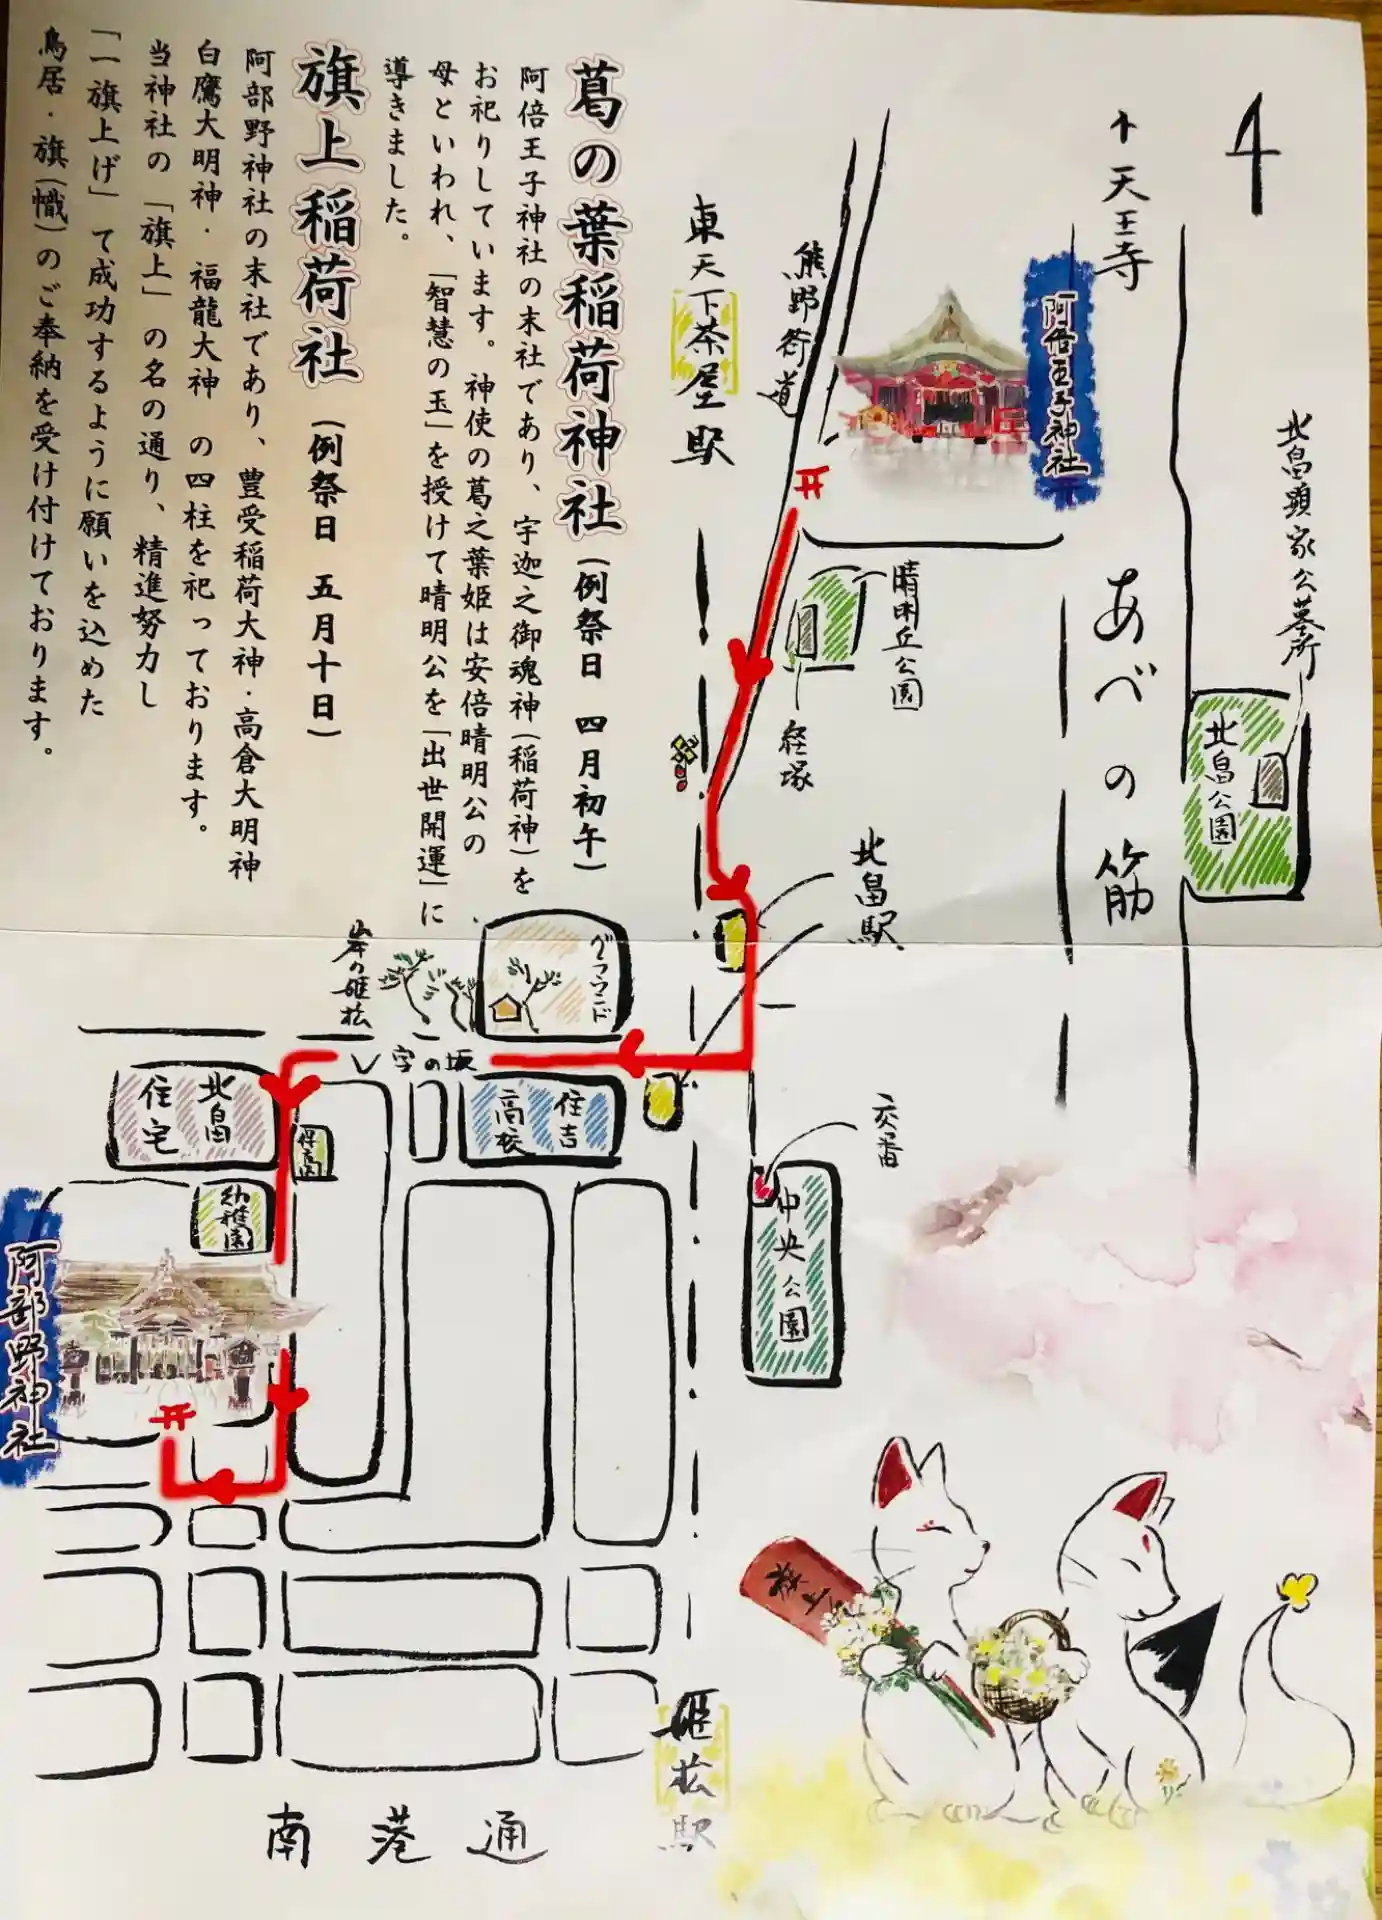 葛の葉稲荷神社(例祭日 四月初午)
阿倍王子神社の末社であり、宇迦之御魂神(稲荷神)を
お祀りしています。神使の葛之葉姫は安倍晴明公の
母といわれ、「智慧の玉」を授けて晴明公を「出世開運」に
導きました。
旗上稲荷社(例祭日 五月十日)
阿部野神社の末社であり、豊受稲荷大神・高倉大明神
白鷹大明神・福龍大神 の四柱を祀っております。
当神社の「旗上」の名の通り、精進努力し
「一旗上げ」て成功するように願いを込めた
鳥居・旗(幟)のご奉納を受け付けております。
↑天王寺
阿倍王子神社
熊野街道
東天下茶屋駅
北畠顕家公墓所
北畠公園
あべの筋
晴明丘公園
経塚
北畠駅
グラウンド
岸の姫松
V字の坂
北畠
住宅
住吉
高校
保育園
幼稚園
交番
中央公園
阿部野神社
旗上
姫松駅
南港通